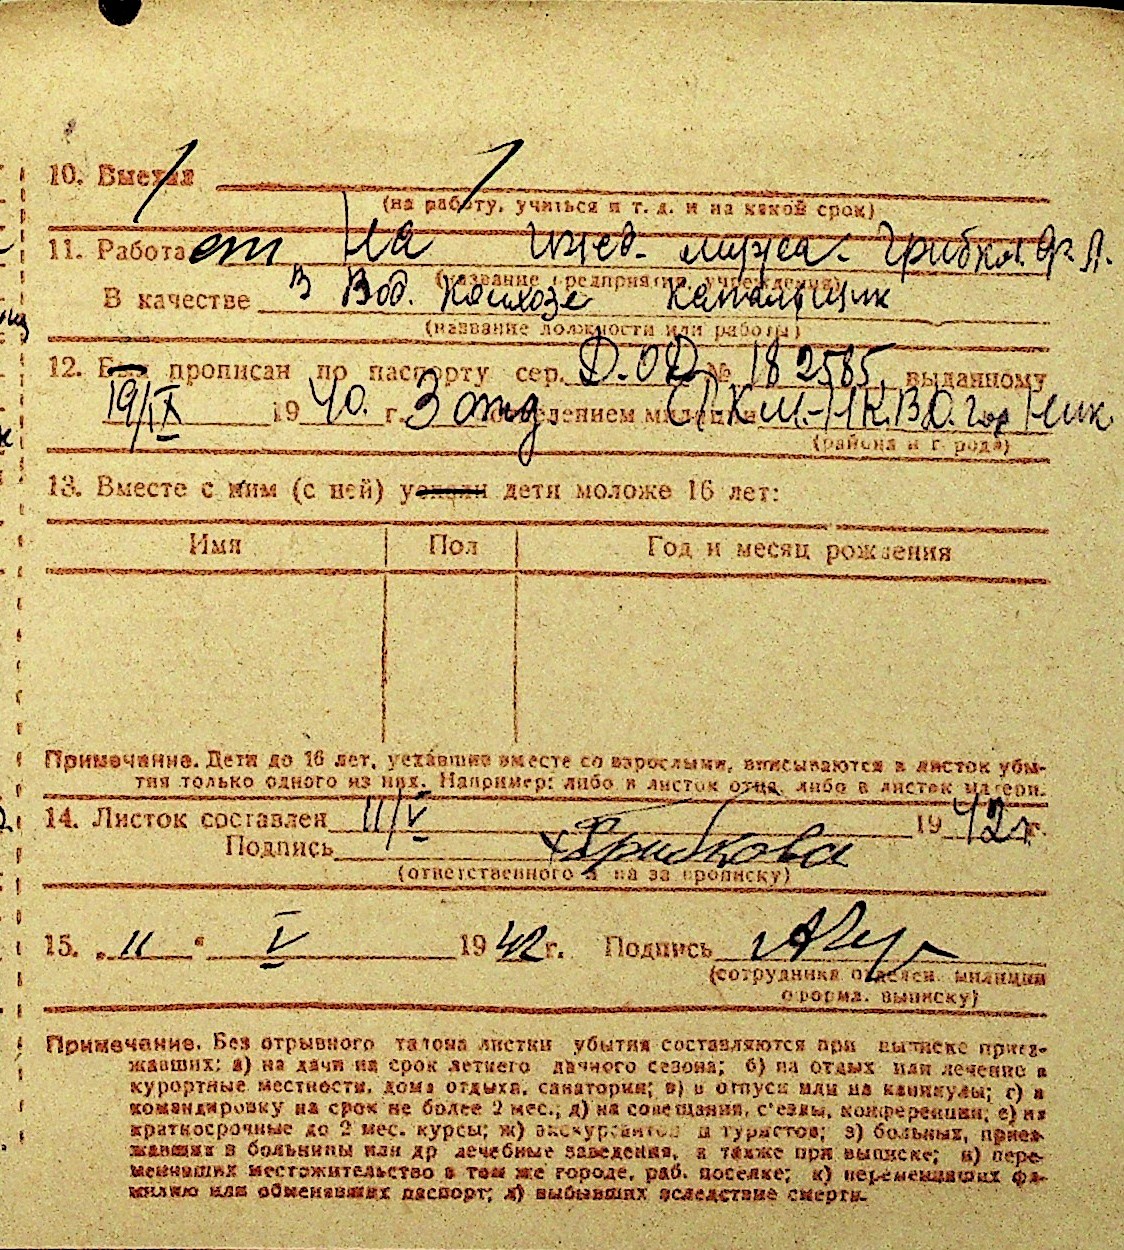 10. Выехал
(на работу, учиться и т. д. и на какой срок)
11. Работа На Ижед. мужа - Грибков. Ф. Л.
(название предприятия, учреждения)
В качестве в Вод. Колхозе
(название должности или работы)
12. Был прописан по паспорту сер. Д. ОД № 182585 выданному
19/IX 1940. г. 3 отд отделением милиции НКВД. гор
(района и города)
13. Вместе с ним (с ней) уехали дети моложе 16 лет:
Имя Пол Год и месяц рождения
Примечание. Дети до 16 лет, уехавшие вместе со взрослыми, вписываются в листок убы-
тия только одного из них. Например: либо в листок отца, либо в листок матери.
14. Листок составлен 11/V 1942 г.
Подпись Грибкова
(ответственного лица за прописку)
15. „ 11 “ V 1942 г. Подпись
(сотрудника отделен. милиции
оформл. выписку)
Примечание. Без отрывного талона листки убытия составляются при выписке приез-
жавших: а) на дачи на срок летнего дачного сезона; б) на отдых или лечение в
курортные местности, дома отдыха, санатории; в) в отпуск или на каникулы; г) в
командировку на срок не более 2 мес.; д) на совещания, съезды, конференции; е) на
краткосрочные до 2 мес. курсы; ж) экскурсантов и туристов; з) больных, приез-
жавших в больницы или др лечебные заведения, а также при выписке; и) пере-
менивших местожительство в том же городе, раб. поселке; к) переменивших фа-
милию или обменявших паспорт; л) выбывших вследствие смерти.